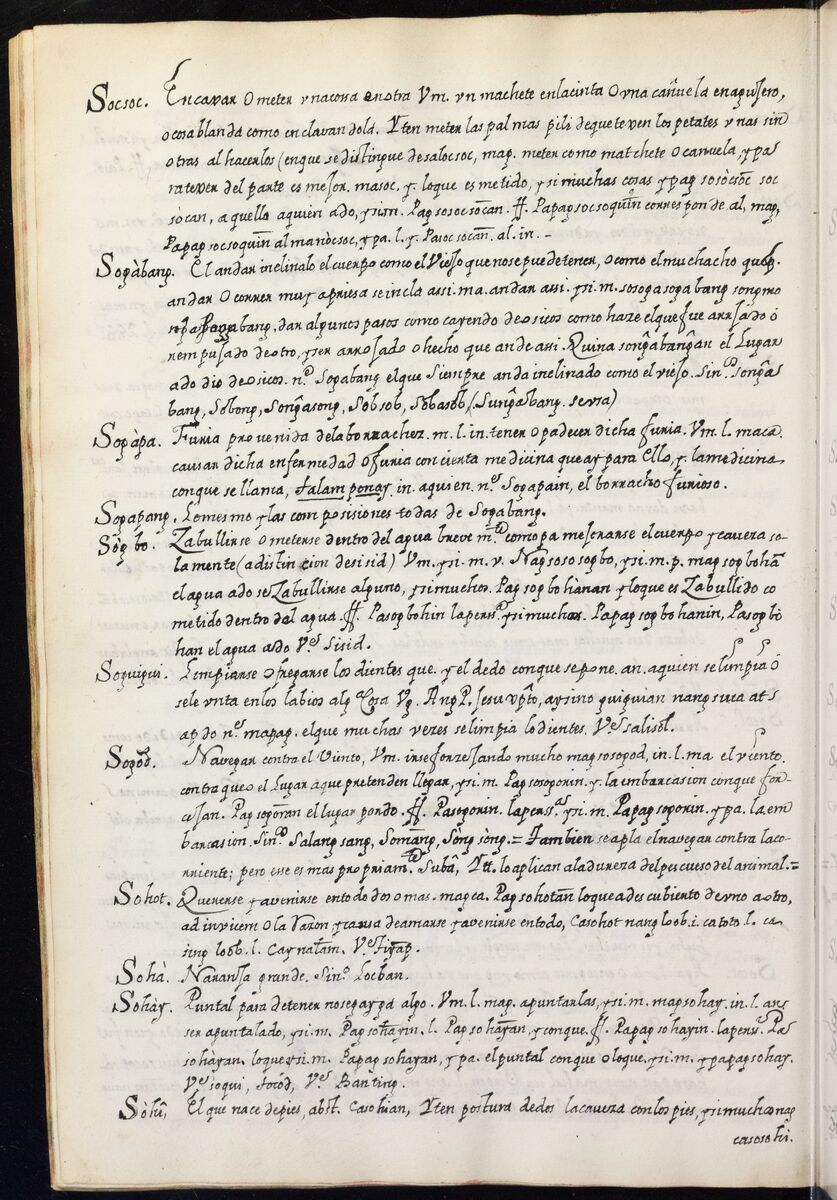 Socsoc. Encavar o meter vna cossa en otra Vm. vn machete en la cinta o vna cañuela en agusero,
o cosa blanda como enclavandola. Yten meter las palmas pili de que texen los petates vnas sin
otras al hacerlos (en que se distingue de salocsoc, map. meter como matchete o canuela, y pa
ra texer del parte es mejor. masoc, y. lo que es metido, y si muchas cosas y pag sosòcsoc soc
sòcan, a quello a quien ado, y si m. Pag sosocsocan. ff. Papag socsoquin corresponde. al, map,
Papag socsoquin al manòcsoc, y pa. l. y. Paioc socan. al. in. -
Sogàbang. El andar inclinado el cuerpo como el Viejo que no se puede tener, o como el muchacho que
andar o correr muy apriesa se incla assi. ma. andar assi. y si. m. sosogasoga bang songmo
bang, dar algunos pasos como cayendo de osicos como haze el que fue arrojado ò
rempusado de otro, y ser arrojado o hecho que ande assi. Quina songabangan el Lugar
ado dio de osicos. n.º Sogabang el que siempre anda inclinado como el viejo. Sin.º songas
bang, Sobong, Songasong, Sobsob, Sobasob, (Sungabang. se vsa)
Sogàpa. Furia provenida de la borrachez. m. l. in. tener o padecer dicha furia. Vm. l. maca
causar dicha enfermedad o furia con cierta medicina que ay para ello, y. la medicina
con que se llama, Talamponay. in. a quien. n.es Sogapain, el borracho furioso.
Sogapang. Lo mesmo y las composisiones todas de Sogabang.
Sògbo. Zabullirse o meterse dentro del agua breve m.te como pa mojarse el cuerpo y caveza so-
lamente (a distincion de sisid) Vm. y si. m. v. Nag soso sogbo, y si. m. p. map sogbohan
el agua ado se Zabullirse alguno, y si muchos. Pag sogbo hànan y lo que es Zabullido co
metido dentro dal agua. ff. Pasogbohin la perss.ª y si muchas. Papag sogbo hanin, Pasogbò
han el agua ado V.es Sisid.
Soguigui. Limpiarse o fregarse los dientes que. y el dedo con que se pone. an. a quien se limpia ò
se le vnta en los labios alg.ª Cosa Vg. Ang P. Jesu xpto, ay sino guiguian nang suca at s
apdo n.es mapag. el que muchas vezes se limpia lo dientes. V.es salisol.
Sogod. Navegar contra el Viento, Vm. irse forzejando mucho mag sosogod, in. l. ma el viento.
contra que o el Lugar a que pretenden llegar, y si. m. Pag sosogorin. y. la embarcasion con que for-
cejan. Pag sogoran el lugar por do. ff. Pasogorin. la perss.ª y si. m. Papag sogorin. y pa. la em
barcasion. Sin.º Salang sang, Somang, Sòng sòng. = Tambien se apla el navegar contra la co-
rriente; pero esse es mas propriam.te Subâ, Ytt. lo aplican a la dureza del pescueso del animal. =
Sohot. Quererse y avenirse en todo dos o mas. mag ca. Pag sohotan lo que ades cubiento de vno a otro,
ad invicem o la razon y causa de amarse y avenirse en todo, Casohot nang loob. i. ca toto. l. ca
sing loob. l. Caynatam. V.es
Sohà. Naranja grande. Sin.º Locban.
Sohày. Puntal para detener no se cayga algo. Vm. l. mag. apuntarlas, y si. m. mapsohay. in. l. an
ser apuntalado, y si. m. Pag sohayin. l. Pag sohayan, y con que. ff. Papag sohayin. la perss.ª Pa
sohayan. lo que y si. m. Papag sohayan, y pa. el puntal con que o lo que. y si. m. y papag sohay.
V.es soqui, Tocód, V.es Banting.
Sohî, El que nace de pies, abst. Casohian, Yten postura de dos la caveza con los pies, y si muchos nag
casosohi.